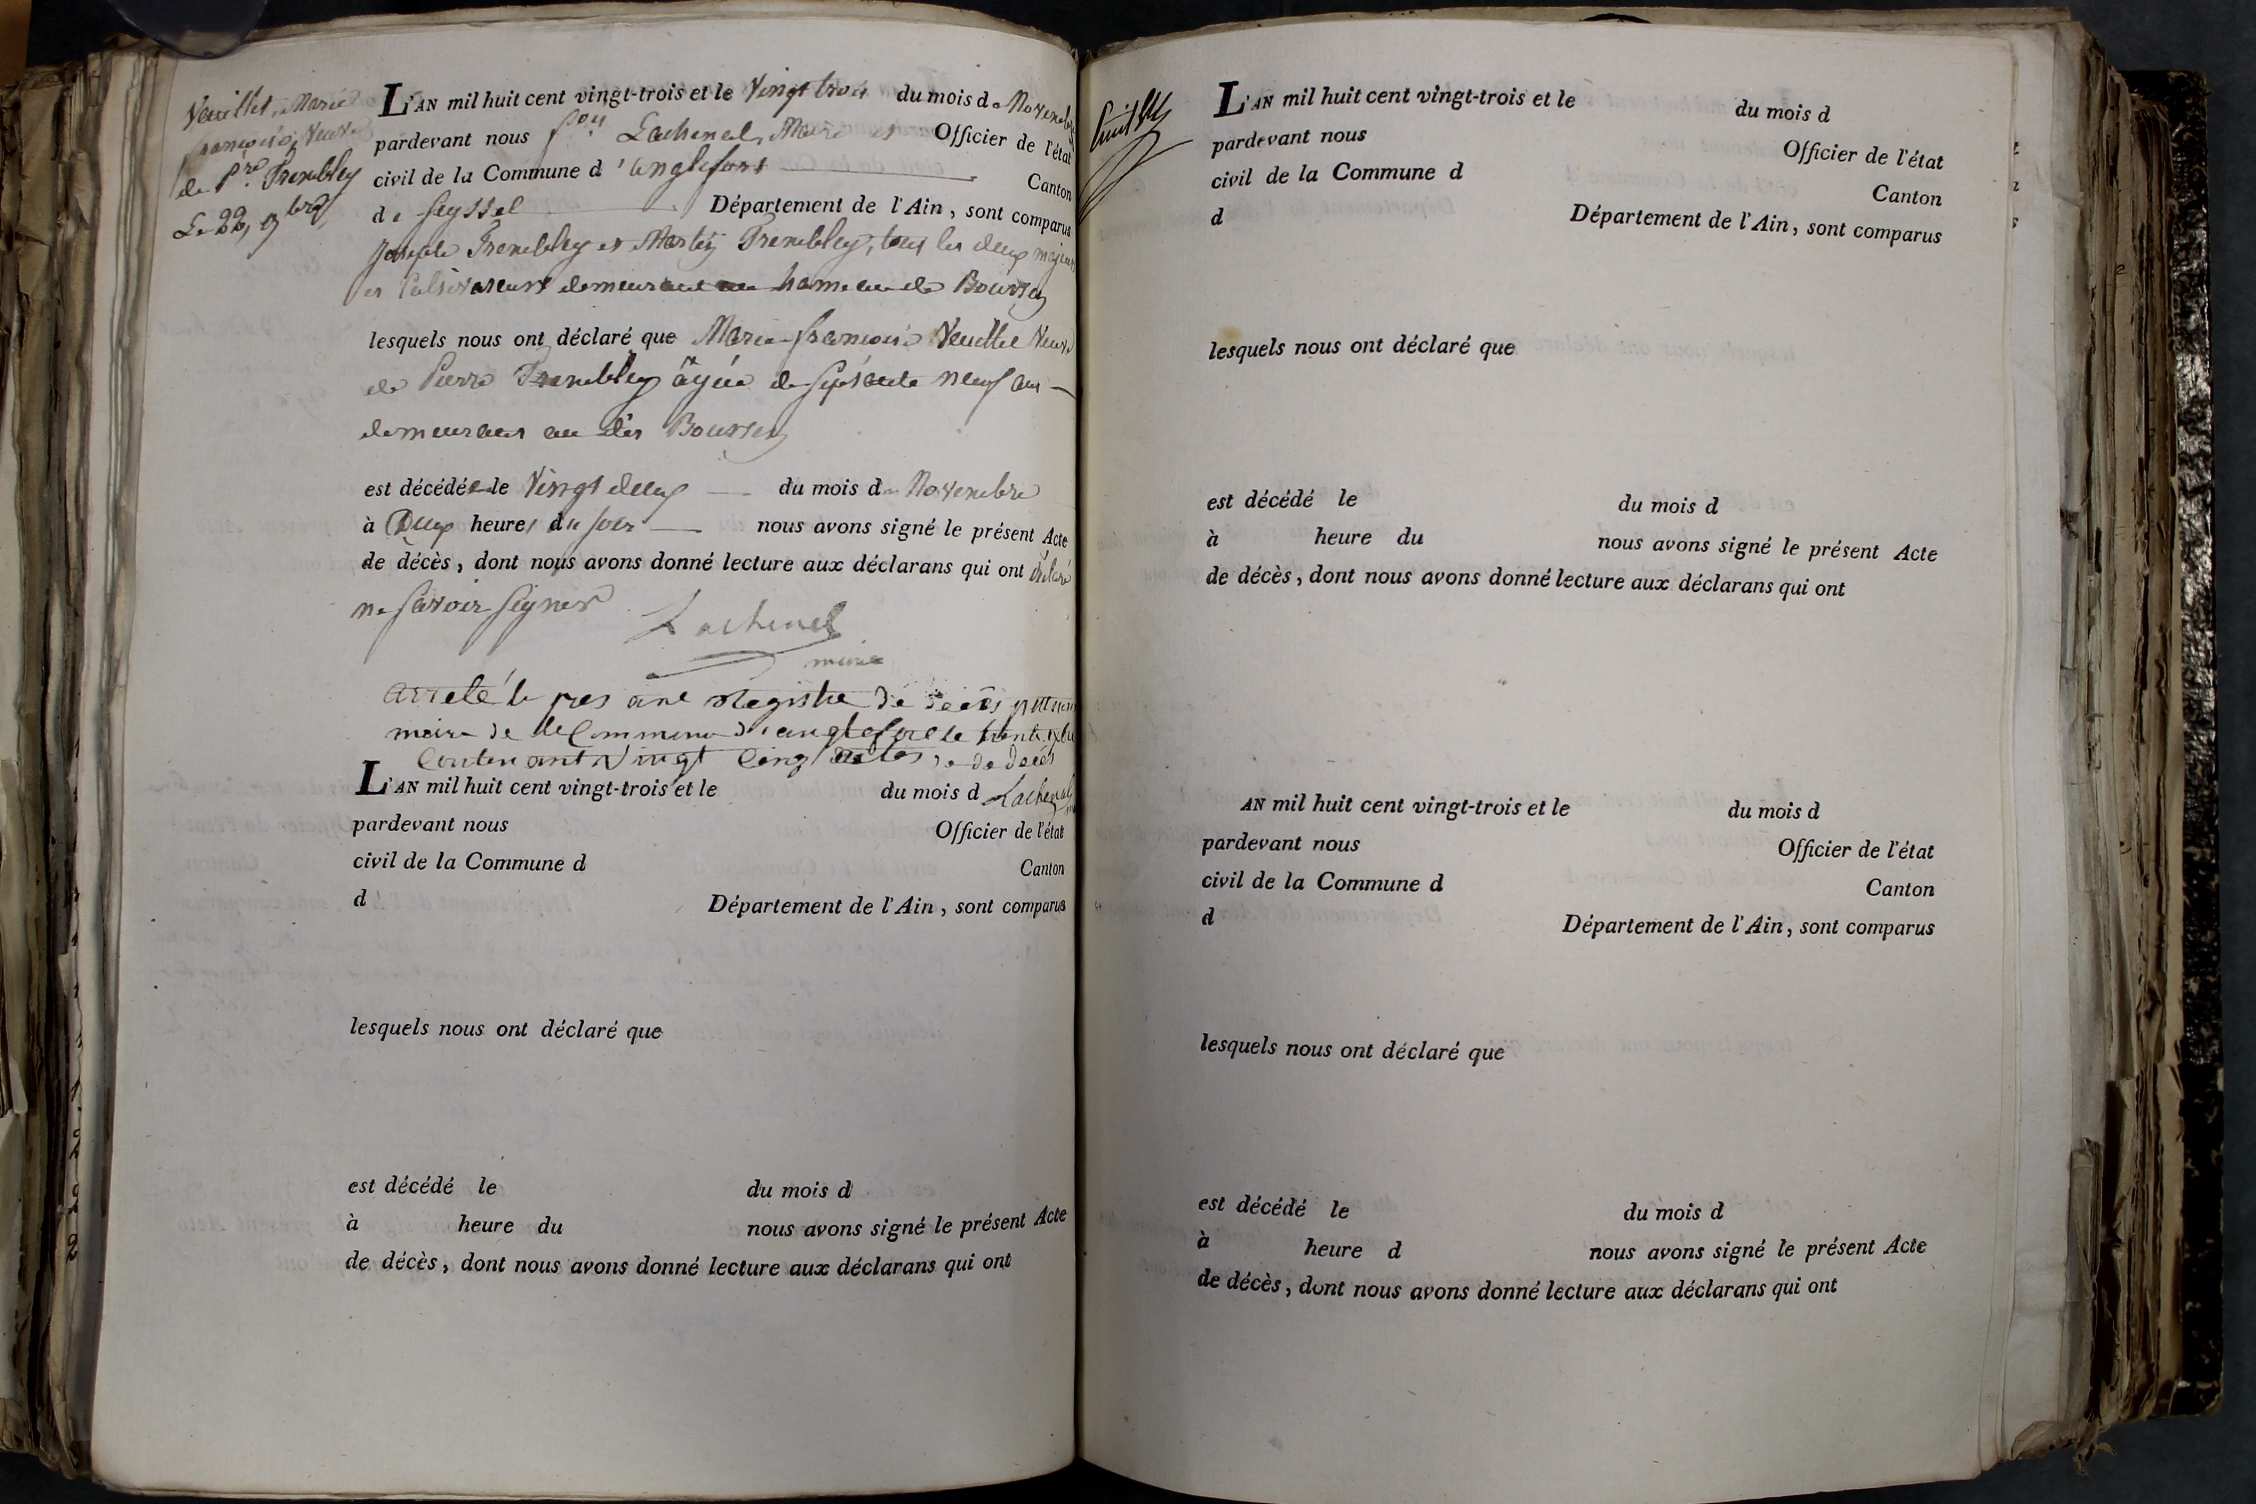 Veuillet, Marie
françoise, Veuve
de Pre Trembley
Le 22, 9bre
L'AN mil huit cent vingt-trois et le Vingt trois du mois de Novembre
pardevant nous Lachenal, Maire et Officier de l'état
civil de la Commune d'anglefort Canton
de Seyssel Département de l'Ain, sont comparus
Joseph Trembley et Trembley, tous les deux majeurs
et Cultivateurs demeurant au hameau de Boursey
lesquels nous ont déclaré que Marie françoise Veuillet Veuve
de Pierre Trembley âgée de septante neuf ans
demeurant au dit Boursey
est décédée le Vingt deux du mois de Novembre
à Deux heures du soir nous avons signé le présent Acte
de décès, dont nous avons donné lecture aux déclarans qui ont déclaré
ne savoir signer
Lachenal
maire
arreté le pres ant Registre de décès
maire de la Commune d'anglefort le trente
Contenant Vingt Cinq actes de décés
L'AN mil huit cent vingt-trois et le du mois d Lachenal
pardevant nous Officier de l'état
civil de la Commune d Canton
d Département de l'Ain, sont comparus
lesquels nous ont déclaré que
est décédé le du mois d
à heure du nous avons signé le présent Acte
de décès, dont nous avons donné lecture aux déclarans qui ont
L'AN mil huit cent vingt-trois et le du mois d
pardevant nous Officier de l'état
civil de la Commune d Canton
d Département de l'Ain, sont comparus
lesquels nous ont déclaré que
est décédé le du mois d
à heure du nous avons signé le présent Acte
de décès, dont nous avons donné lecture aux déclarans qui ont
AN mil huit cent vingt-trois et le du mois d
pardevant nous Officier de l'état
civil de la Commune d Canton
d Département de l'Ain, sont comparus
lesquels nous ont déclaré que
est décédé le du mois d
à heure d nous avons signé le présent Acte
de décès, dont nous avons donné lecture aux déclarans qui ont